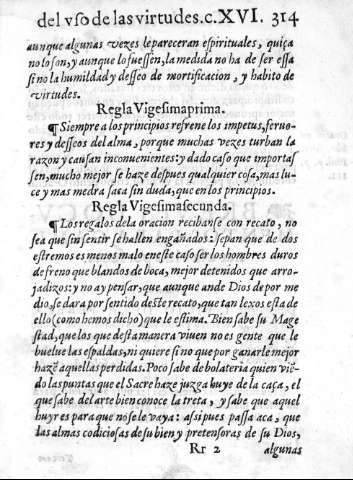 del vso de las virtudes.c.XVI. 314
aunque algunas vezes le pareceran espirituales, quiça
no lo son, y aunque lo fuessen, la medida no ha de ser essa
sino la humildad y desseo de mortificacion, y habito de
virtudes.
Regla Vigesimaprima.
¶ Siempre a los principios refrene los impetus, feruo-
res y desseos del alma, porque muchas vezes turban la
razon y causan inconuenientes: y dado caso que importas
sen, mucho mejor se haze despues qualquier cosa, mas lu-
ce y mas medra saca sin duda, que en los principios.
Regla Vigesimasecunda.
¶ Los regalos dela oracion recibanse con recato, no
sea que sin sentir se hallen engañados: sepan que de dos
estremos es menos malo en este caso ser los hombres duros
de freno que blandos de boca, mejor detenidos que arro-
jadizos: y no ay pensar, que aunque ande Dios de por me
dio, se dara por sentido deste recato, que tan lexos esta de
ello (como hemos dicho) que le estima. Bien sabe su Mage
stad, que los que desta manera viuen no es gente que le
buelue las espaldas, ni quiere sino que por ganarle mejor
hazē aquellas perdidas. Poco sabe de bolateria quien viē-
do las puntas que el Sacre haze juzga huye de la caça, el
que sabe del arte bien conoce la treta, y sabe que aquel
huyr es para que no se le vaya: assi pues passa aca, que
las almas codiciosas de su bien y pretensoras de su Dios,
Rr 2 algunas